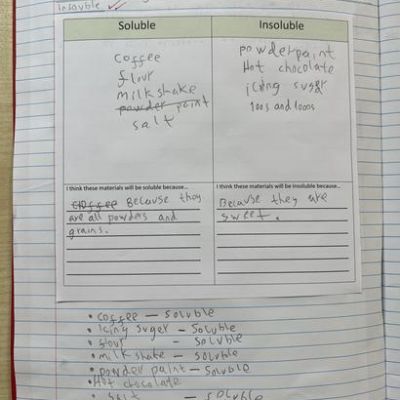 Insouble
Soluble
Insoluble
coffee
flour
milkshake
powder paint
salt
powderpaint
Hot chocolate
icing suger
100s and 1000s
I think these materials will be soluble because...
Because they
are all powders and
grains.
I think these materials will be insoluble because...
Because they are
sweet.
• coffee – soluble
• Icing suger – Soluble
• flour – soluble
• milk shake – soluble
• powder paint – Soluble
• Hot chocolate
• salt – soluble